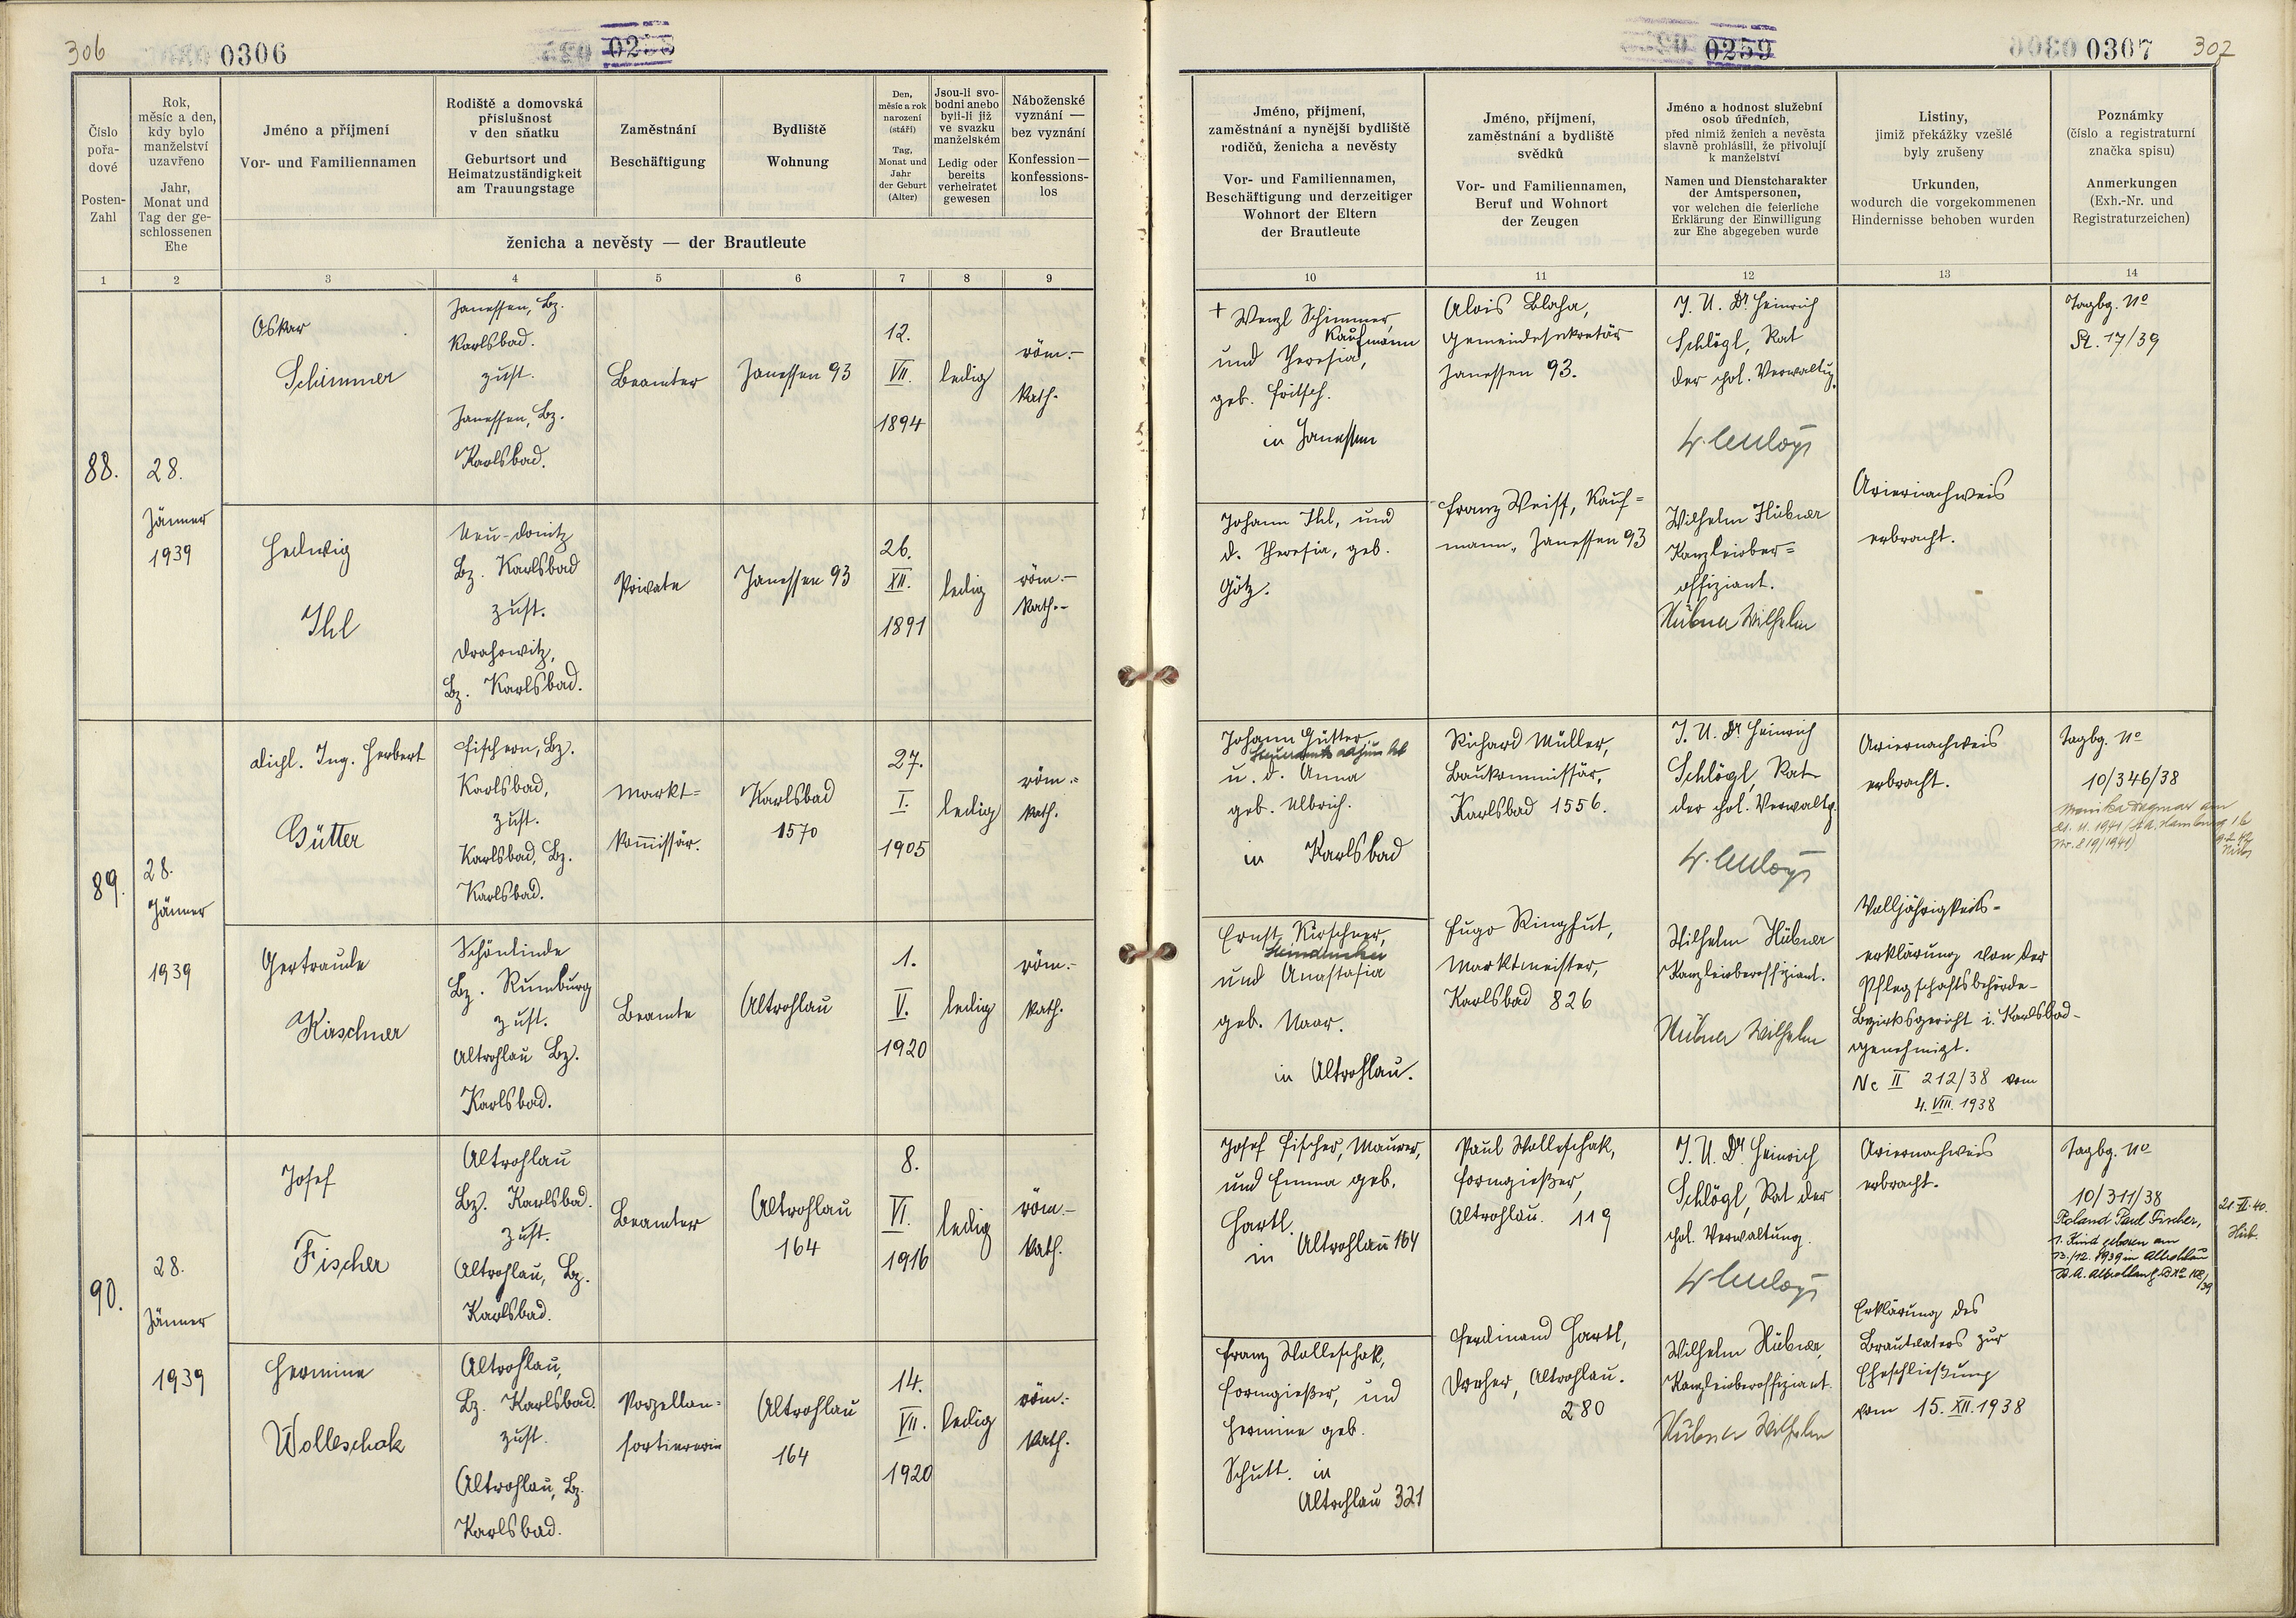 306
0306
0258
Číslo
pořa-
dové
Posten-
Zahl
Rok,
měsíc a den,
kdy bylo
manželství
uzavřeno
Jahr,
Monat und
Tag der ge-
schlossenen
Ehe
Jméno a příjmení
Vor- und Familiennamen
Rodiště a domovská
příslušnost
v den sňatku
Geburtsort und
Heimatzuständigkeit
am Trauungstage
Zaměstnání
Beschäftigung
Bydliště
Wohnung
Den,
měsíc a rok
narození
(stáří)
Tag,
Monat und
Jahr
der Geburt
(Alter)
Jsou-li svo-
bodni anebo
byli-li již
ve svazku
manželském
Ledig oder
bereits
verheiratet
gewesen
Náboženské
vyznání —
bez vyznání
Konfession —
konfessions-
los
ženicha a nevěsty — der Brautleute
1
2
3
4
5
6
7
8
9
88.
28.
Jänner
1939
Oskar
Schimmer
Janessen, Bz.
Karlsbad.
zust.
Janessen, Bz.
Karlsbad.
Beamter
Janessen 93
12.
VII.
1894
ledig
röm.-
kath.
Hedwig
Ihl
Neu-Donitz
Bz. Karlsbad
zust.
Drahowitz,
Bz. Karlsbad.
Private
Janessen 93
26.
XII.
1891
ledig
röm.-
kath.-
89.
28.
Jänner
1939
Dipl. Ing. Herbert
Gütter
Fischern, Bz.
Karlsbad,
zust.
Karlsbad, Bz.
Karlsbad.
Markt-
kommissär.
Karlsbad
1570
27.
I.
1905
ledig
röm.-
kath.
Gertraude
Kirschner
Schönlinde
Bz. Rumburg
zust.
Altrohlau Bz.
Karlsbad.
Beamte
Altrohlau
1.
V.
1920
ledig
röm.-
kath.
90.
28.
Jänner
1939
Josef
Fischer
Altrohlau
Bz. Karlsbad.
zust.
Altrohlau, Bz.
Karlsbad.
Beamter
Altrohlau
164
8.
VI.
1916
ledig
röm.-
kath.
Hermine
Wolleschak
Altrohlau,
Bz. Karlsbad.
zust.
Altrohlau, Bz.
Karlsbad.
Porzellan-
sortiererin
Altrohlau
164
14.
VII.
1920
ledig
röm.-
kath.
0259
0307
307
Jméno, příjmení,
zaměstnání a nynější bydliště
rodičů, ženicha a nevěsty
Vor- und Familiennamen,
Beschäftigung und derzeitiger
Wohnort der Eltern
der Brautleute
Jméno, příjmení,
zaměstnání a bydliště
svědků
Vor- und Familiennamen,
Beruf und Wohnort
der Zeugen
Jméno a hodnost služební
osob úředních,
před nimiž ženich a nevěsta
slavně prohlásili, že přivolují
k manželství
Namen und Dienstcharakter
der Amtspersonen,
vor welchen die feierliche
Erklärung der Einwilligung
zur Ehe abgegeben wurde
Listiny,
jimiž překážky vzešlé
byly zrušeny
Urkunden,
wodurch die vorgekommenen
Hindernisse behoben wurden
Poznámky
(číslo a registraturní
značka spisu)
Anmerkungen
(Exh.-Nr. und
Registraturzeichen)
10
11
12
13
14
+ Wenzl Schimmer,
Kaufmann
und Theresia,
geb. Fritsch.
in Janessen
Alois Blaha,
Gemeindesekretär
Janessen 93.
J. U. Dr Heinrich
Schlögl, Rat
der pol. Verwaltg.
Tagbg. No
St. 17/39
Johann Ihl, und
d. Theresia, geb.
Götz.
Franz Weiss, Kauf-
mann, Janessen 93
Wilhelm Hübner
Kanzleiober-
offiziant.
Hübner Wilhelm
Ariernachweis
erbracht.
Johann Gütter
Steueramtsadjunkt
u. d. Anna
geb. Ulbrich.
in Karlsbad
Richard Müller,
Baukommissär,
Karlsbad 1556.
J. U. Dr Heinrich
Schlögl, Rat
der pol. Verwaltg.
Ariernachweis
erbracht.
Tagbg. No
10/346/38
Monika Dagmar am
21. 11. 1941 (St. A. Hamburg 1b
Nr. 819/1941)
Ernst Kirschner,
und Anastasia
geb. Naar.
in Altrohlau.
Hugo Ringhut,
Marktmeister,
Karlsbad 826
Wilhelm Hübner
Kanzleioberoffiziant.
Hübner Wilhelm
Volljährigkeits-
erklärung von der
Pflegschaftsbehörde-
Bezirksgericht i. Karlsbad-
genehmigt.
Nc II 212/38 vom
4. VIII. 1938
Josef Fischer, Maurer,
und Emma geb.
Hartl.
in Altrohlau 164
Paul Wolleschak,
Formgießer,
Altrohlau. 119
J. U. Dr Heinrich
Schlögl, Rat der
pol. Verwaltung.
Ariernachweis
erbracht.
Tagbg. No
10/311/38
Roland Paul Fischer,
1. Kind geboren am
13./12. 1939 in Altrohlau
21. VI. 40.
Hüb.
Franz Wolleschak,
Formgießer, und
Hermine geb.
Schutt. in
Altrohlau 321
Ferdinand Hartl,
Dreher, Altrohlau.
280
Wilhelm Hübner,
Kanzleioberoffiziant.
Hübner Wilhelm
Erklärung des
Brautvaters zur
Eheschließung
vom 15. XII. 1938